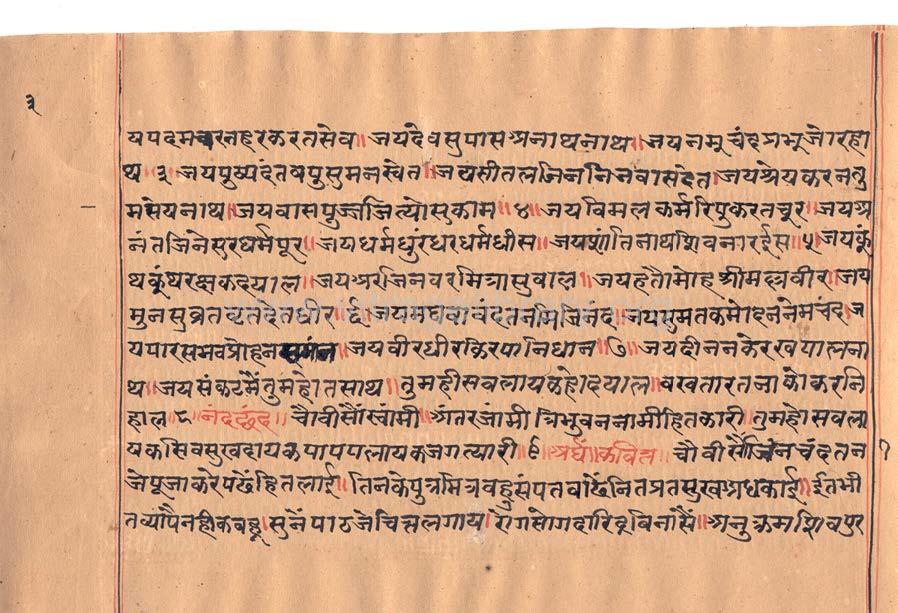 ३
यपदमचरनहरकरतसेव॥जयदेवसुपासअनाथनाथ॥जयनमूचंदप्रभूजोरहा
थ॥३॥जयपुष्पदंतवपुसुमनस्वेत॥जयसीतलजिननिजवासदेत॥जयश्रेयकरनतु
मसेयनाथ॥जयवासपूज्जजित्योसुकाम॥४॥जयविमलकर्मरिपुकरतचूर॥जयअ
नंतजिनेसुरधर्मपूर॥जयधर्मधुरंधरधर्मधीस॥जयशांतिनाथशिवनारईस॥५॥जयकुं
थकुंथरक्षकदयाल॥जयअरजिनवरमित्रासुवाल॥जयहतौमोहश्रीमल्लवीर॥जय
मुनसुव्रतव्रतदेतधीर॥६॥जयमघवावंदतनमिजिनंद॥जयसुमतकमोदननेमचंद॥ज
यपारसभवप्रोहन ॥जयवीरधीरकिरपानिधान॥७॥जयदीननकेरखपालना
थ॥जयसंकटमैंतुमहोतसाथ॥तुमहीसवलायकहोदयाल॥वखतारतनाकोकरनि
हाल॥८॥नंदछंद॥चौवीसौंस्वांमी॥अंतरजांमीत्रिभुवननामीहितकारी॥तुमहोसवला
यकसिवसुखदायकपापपलायकजगत्यारी॥९॥अर्घ॥कवित्त॥चौवीसौंजिनचंदतन
जेपूजाकरेपढेंहितलाई॥तिनकेपुत्रमित्रवहुसंपतवढेंनितप्रतसुखअधकाई॥ईतभी
तव्यापैनहीकबहू॥सुनेंपाठजेचित्तलगाय॥रोगसोगदारिद्रविनासैं॥अनुक्रमशिवपुर
१